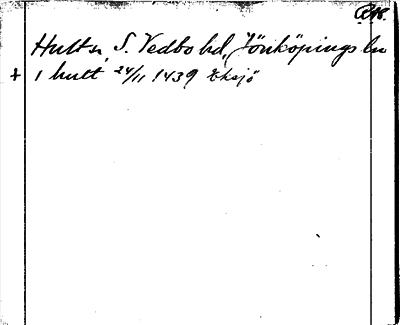 Hulta, S. Vedbo hd, Jönköpings län
+ i hult 24/11 1439 Eksjö